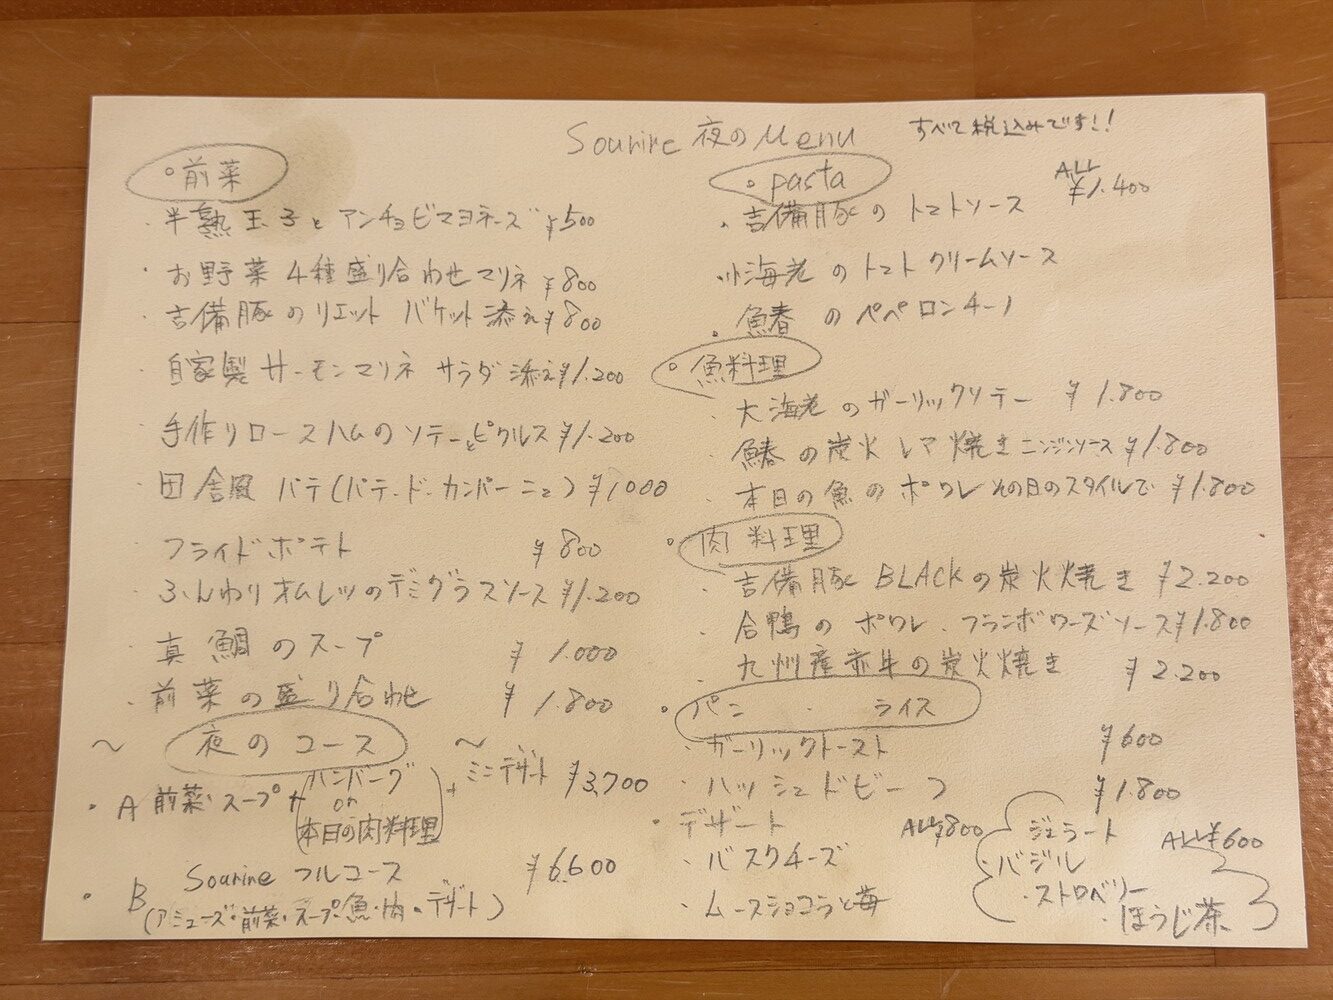 Sourire 夜のMenu
すべて税込みです!!
。前菜
・半熟玉子とアンチョビマヨネーズ ¥500
・お野菜4種盛り合わせマリネ ¥800
・吉備豚のリエット バケット添え ¥800
・自家製サーモンマリネ サラダ添え ¥1.200
・手作りロースハムのソテーとピクルス ¥1.200
・田舎風パテ(パテ・ド・カンパーニュ) ¥1000
・フライドポテト ¥800
・ふんわりオムレツのデミグラスソース ¥1.200
・真鯛のスープ ¥1.000
・前菜の盛り合わせ ¥1.800
〜 夜のコース 〜
・A 前菜・スープ+(ハンバーグ or 本日の肉料理)+ミニデザート ¥3,700
・B Sourire フルコース ¥6.600
(アミューズ・前菜・スープ・魚・肉・デザート)
。pasta ALL ¥1.400
・吉備豚のトマトソース
・小海老のトマトクリームソース
・鰆のペペロンチーノ
。魚料理
・大海老のガーリックソテー ¥1.800
・鰆の炭火レア焼きニンジンソース ¥1.800
・本日の魚のポワレ その日のスタイルで ¥1.800
。肉料理
・吉備豚BLACKの炭火焼き ¥2.200
・合鴨のポワレ、フランボワーズソース ¥1.800
・九州産赤牛の炭火焼き ¥2.200
。パン・ライス
・ガーリックトースト ¥600
・ハッシュドビーフ ¥1.800
・デザート ALL¥800
・バスクチーズ
・ムースショコラと苺
ジェラート ALL¥600
・バジル
・ストロベリー
・ほうじ茶